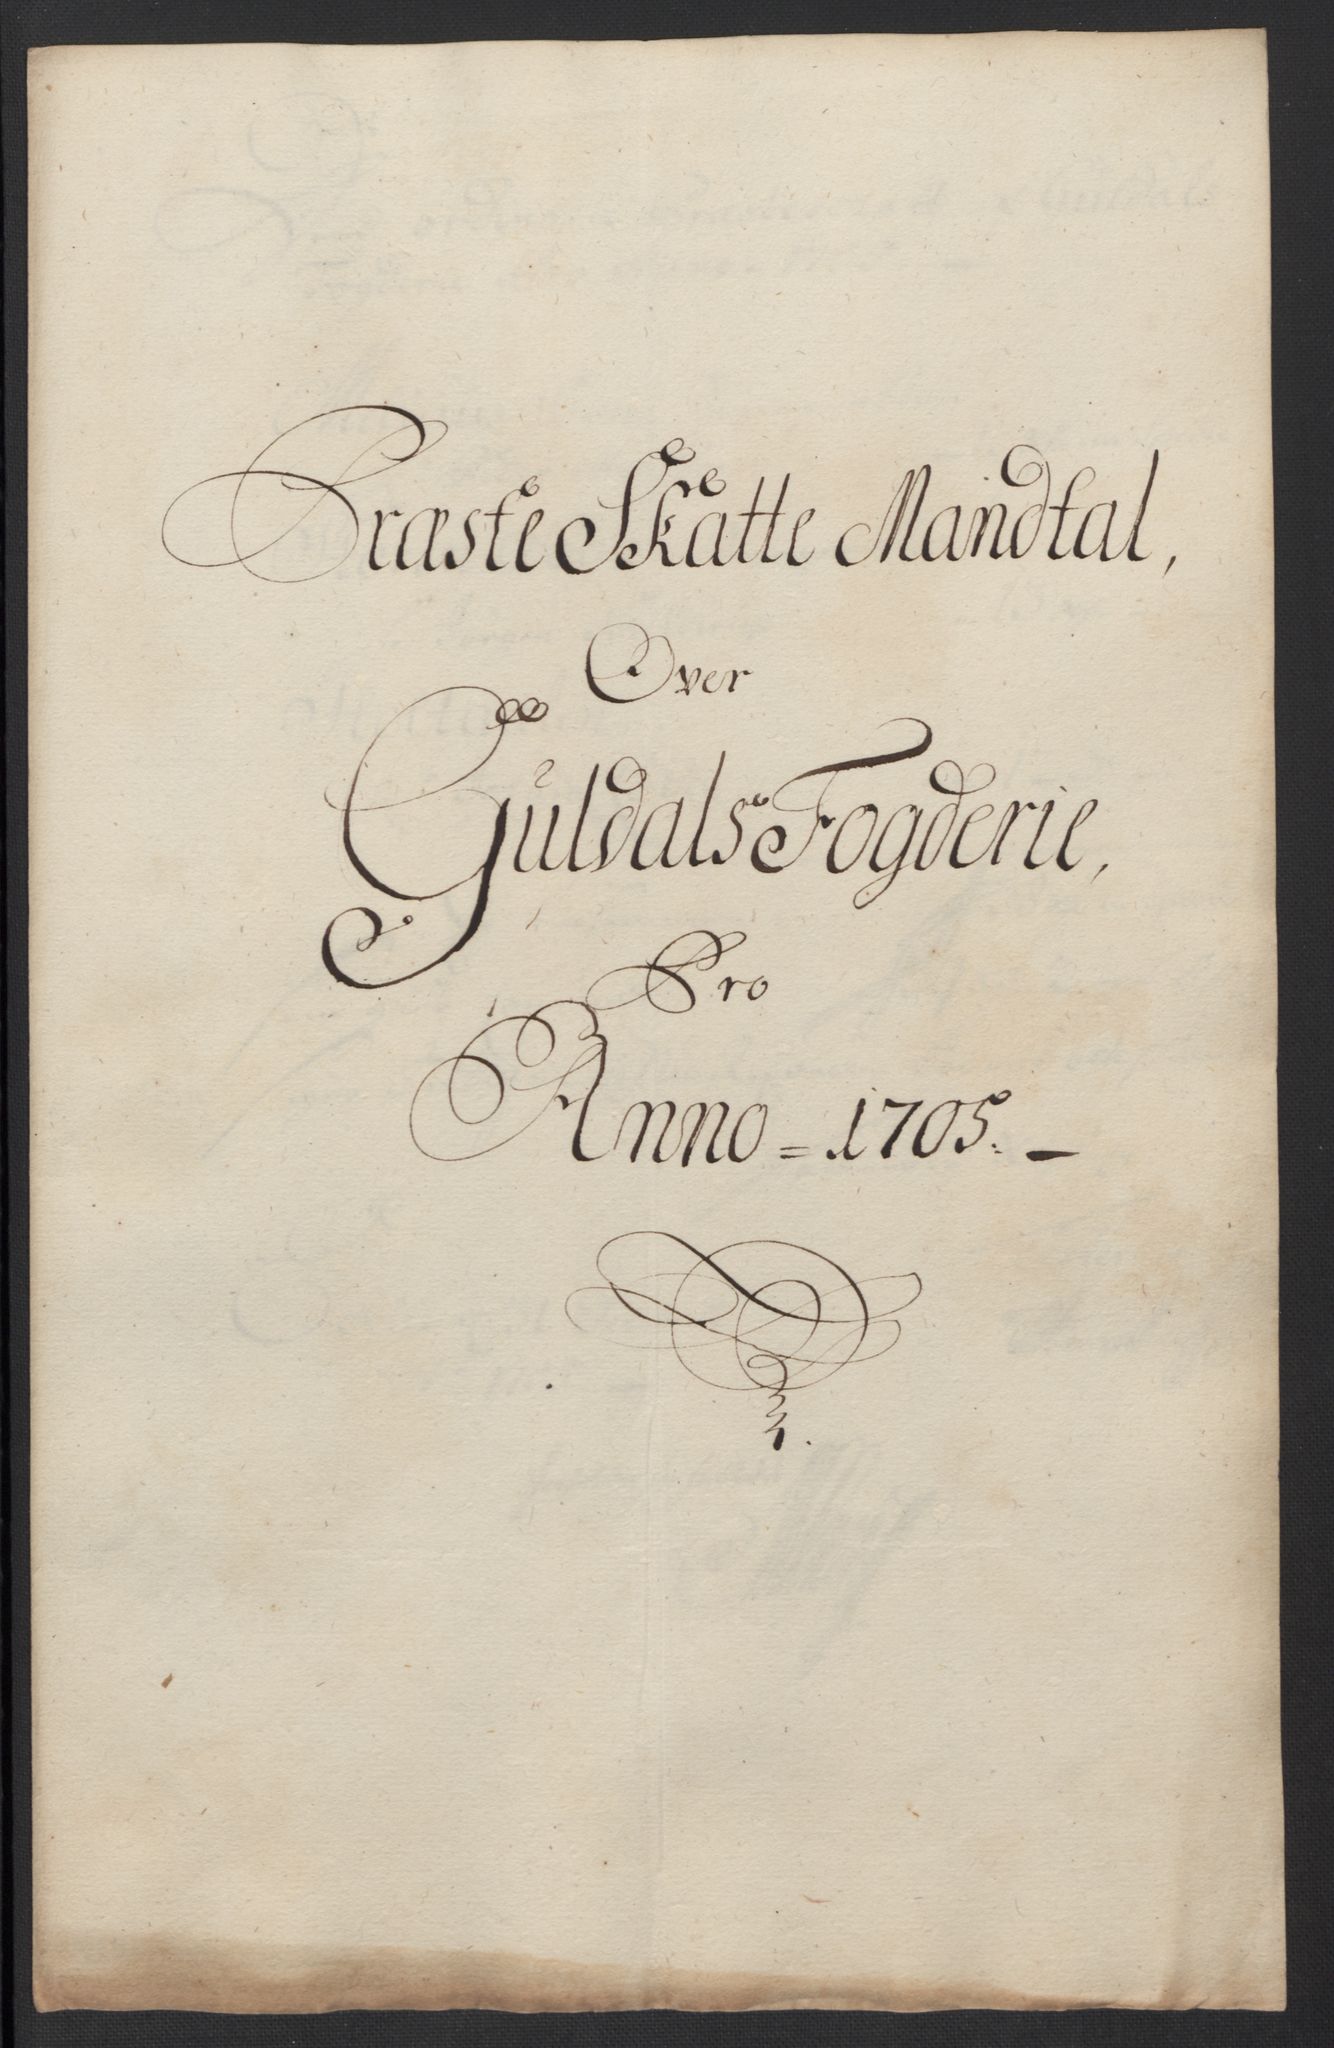 Præste Skatte Mandtal,
Over
Guldals Fogderie,
Pro
Anno = 1705. –